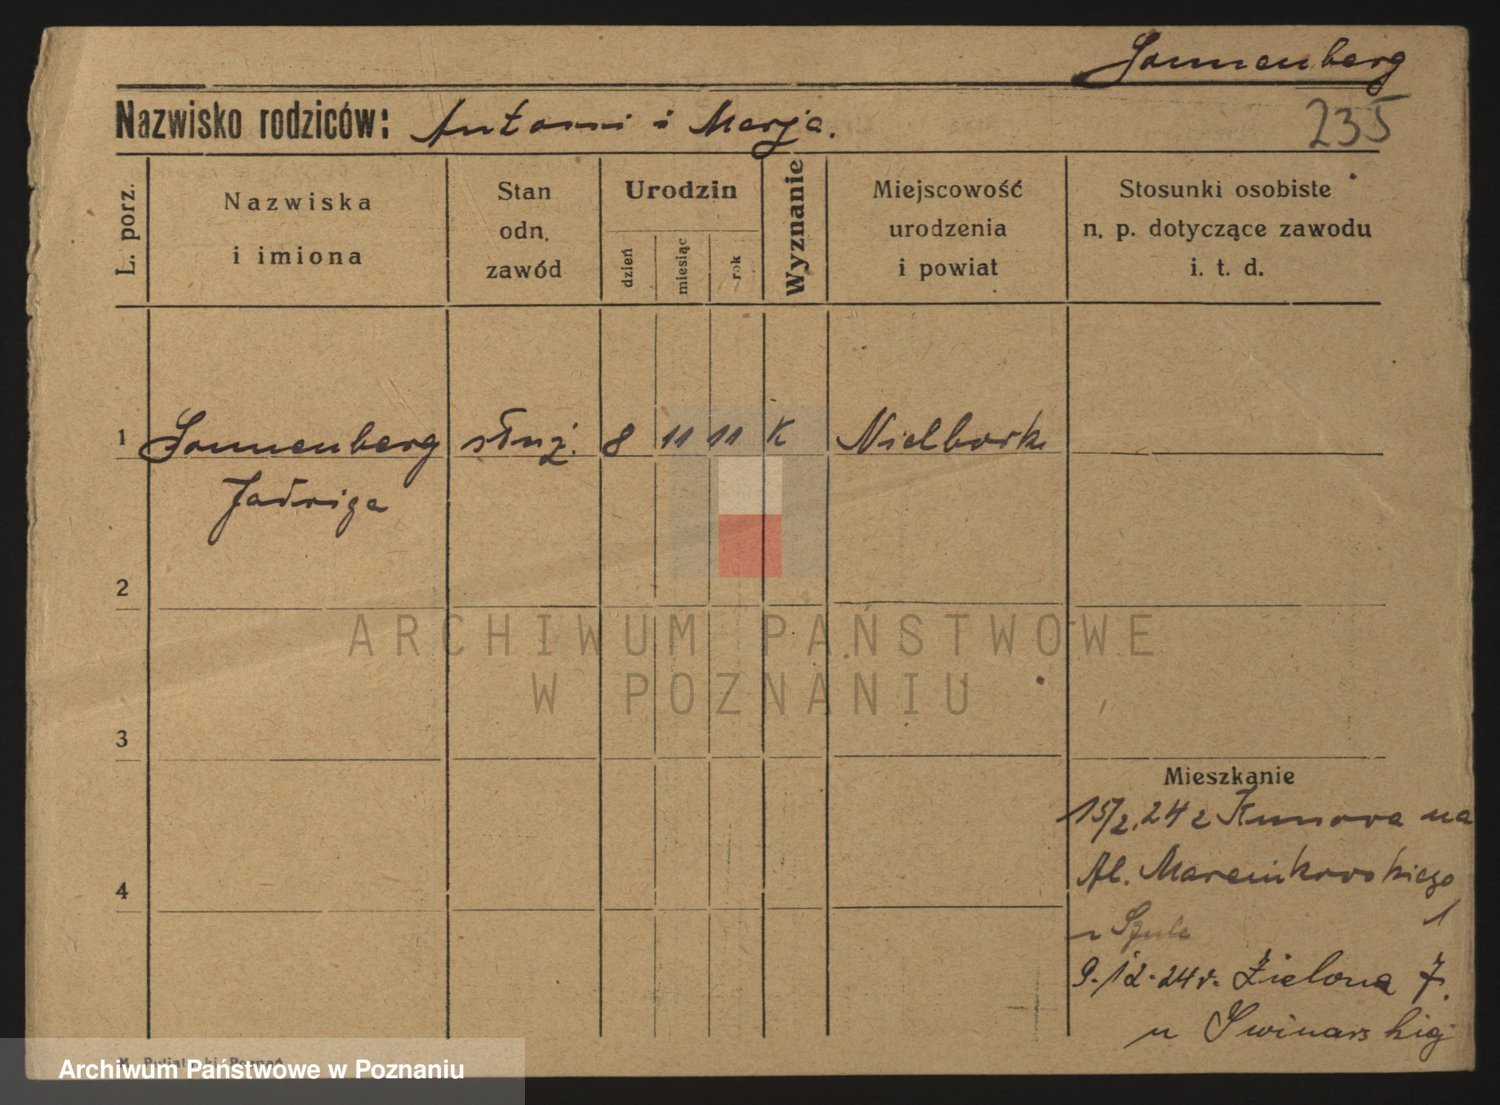 Sonnenberg
Nazwisko rodziców: Antoni i Marja.
235
L. porz.
Nazwiska
i imiona
Stan
odn.
zawód
Urodzin
dzień
miesiąc
rok
Wyznanie
Miejscowość
urodzenia
i powiat
Stosunki osobiste
n. p. dotyczące zawodu
i. t. d.
1 Sonnenberg służ. 8 11 11 K Nielbark
Jadwiga
2
3
4
Mieszkanie
15/2.24 z Kunowa na
Al. Marcinkowskiego
1
u Szulc
9.12.24r. Zielona 7.
u Swinarskiej
ARCHIWUM PAŃSTWOWE
W POZNANIU
Archiwum Państwowe w Poznaniu